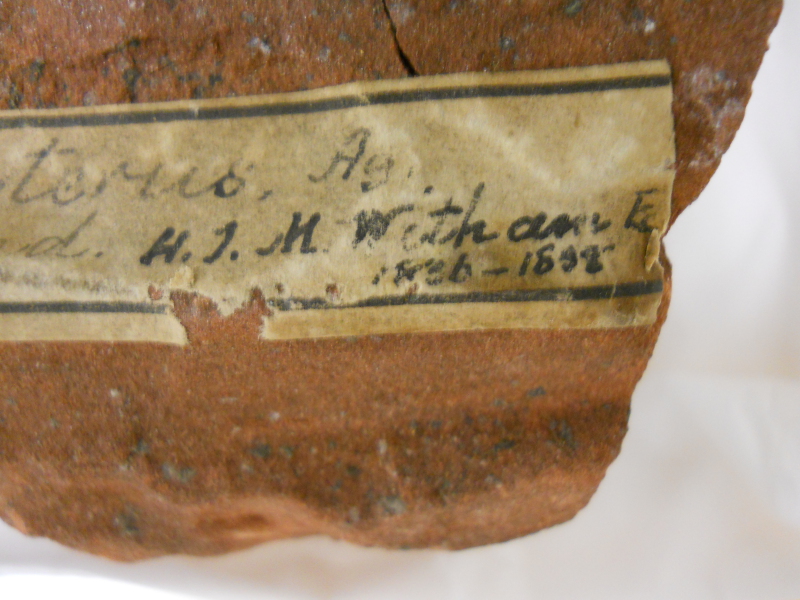 terus, Ag.
d. H. J. M. Witham E
1836-1838